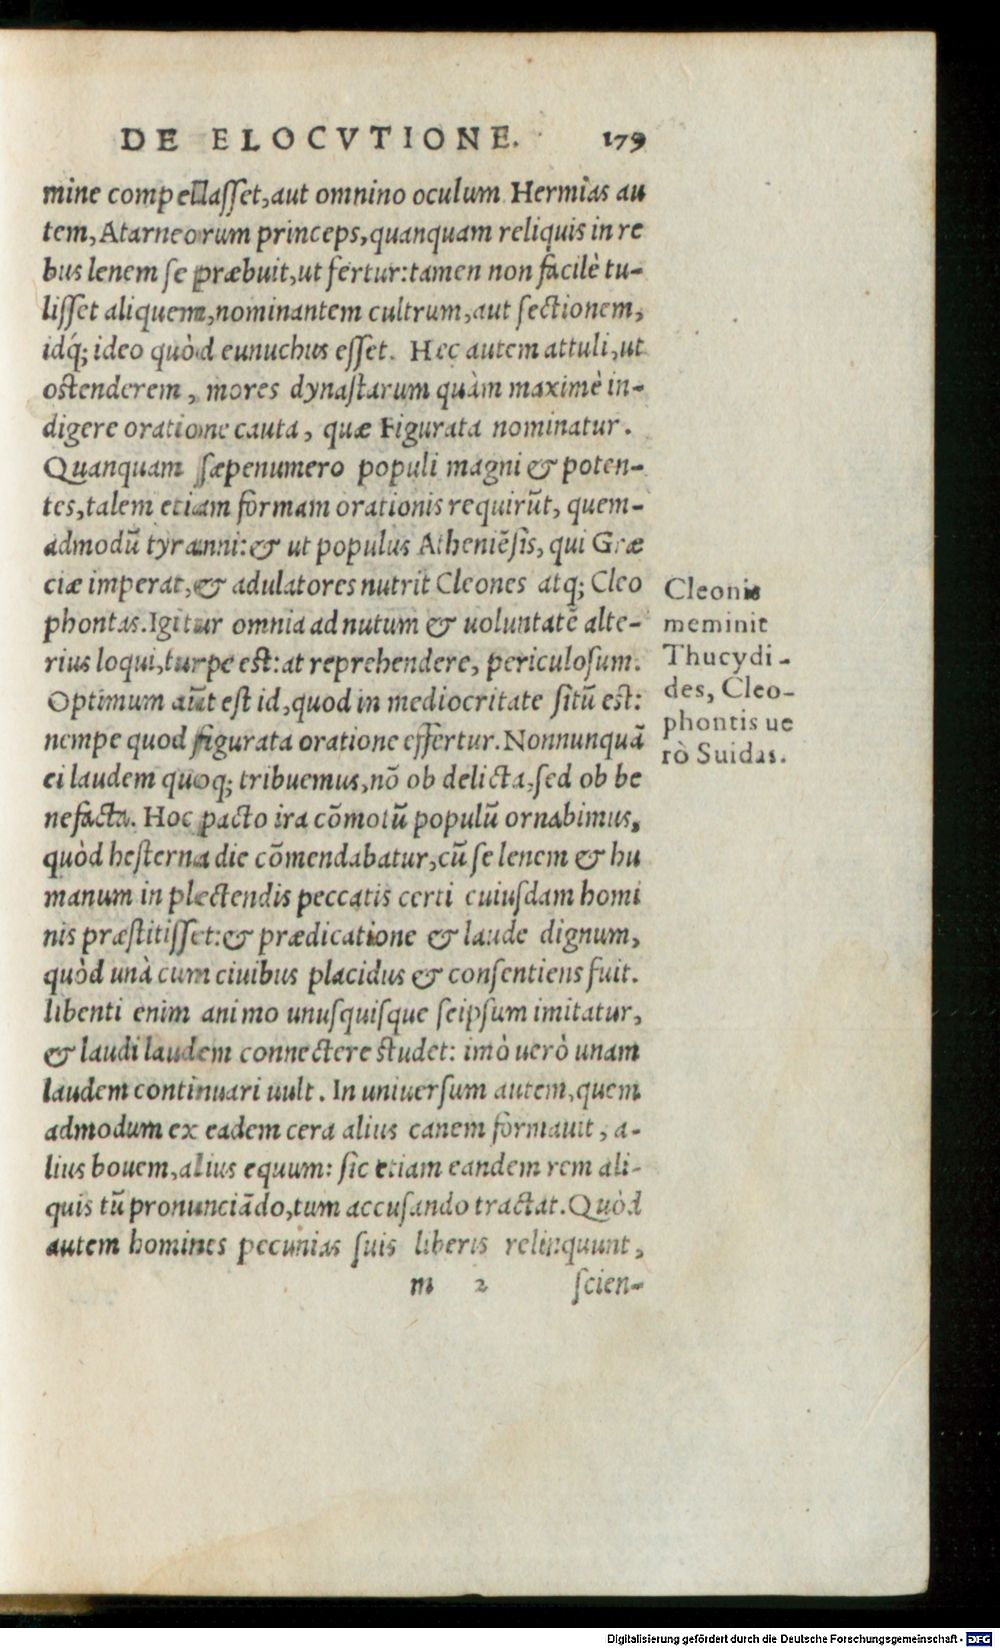 DE ELOCVTIONE. 179
mine compellasset, aut omnino oculum Hermias au
tem, Atarneorum princeps, quanquam reliquis in re
bus lenem se præbuit, ut fertur: tamen non facilè tu-
lisset aliquem, nominantem cultrum, aut sectionem,
idq́; ideo quòd eunuchus esset. Hec autem attuli, ut
ostenderem, mores dynastarum quàm maximè in-
digere oratione cauta, quæ Figurata nominatur.
Quanquam sæpenumero populi magni & poten-
tes, talem etiam formam orationis requirūt, quem-
admodū tyranni: & ut populus Atheniẽsis, qui Græ
ciæ imperat, & adulatores nutrit Cleones atq; Cleo
phontas. Igitur omnia ad nutum & uoluntatẽ alte-
rius loqui, turpe est: at reprehendere, periculosum.
Optimum aūt est id, quod in mediocritate sitū est:
nempe quod figurata oratione effertur. Nonnunquã
ei laudem quoq; tribuemus, nõ ob delicta, sed ob be
nefacta. Hoc pacto ira cõmotū populū ornabimus,
quòd hesterna die cõmendabatur, cū se lenem & hu
manum in plectendis peccatis certi cuiusdam homi
nis præstitisset: & prædicatione & laude dignum,
quòd unà cum ciuibus placidus & consentiens fuit.
libenti enim animo unusquisque seipsum imitatur,
& laudi laudem connectere studet: imò uerò unam
laudem continuari uult. In uniuersum autem, quem
admodum ex eadem cera alius canem formauit, a-
lius bouem, alius equum: sic etiam eandem rem ali-
quis tū pronunciãdo, tum accusando tractat. Quòd
autem homines pecunias suis liberis relinquunt,
m 2 scien-
Cleonis
meminit
Thucydi-
des, Cleo-
phontis ue
rò Suidas.
Digitalisierung gefördert durch die Deutsche Forschungsgemeinschaft - DFG